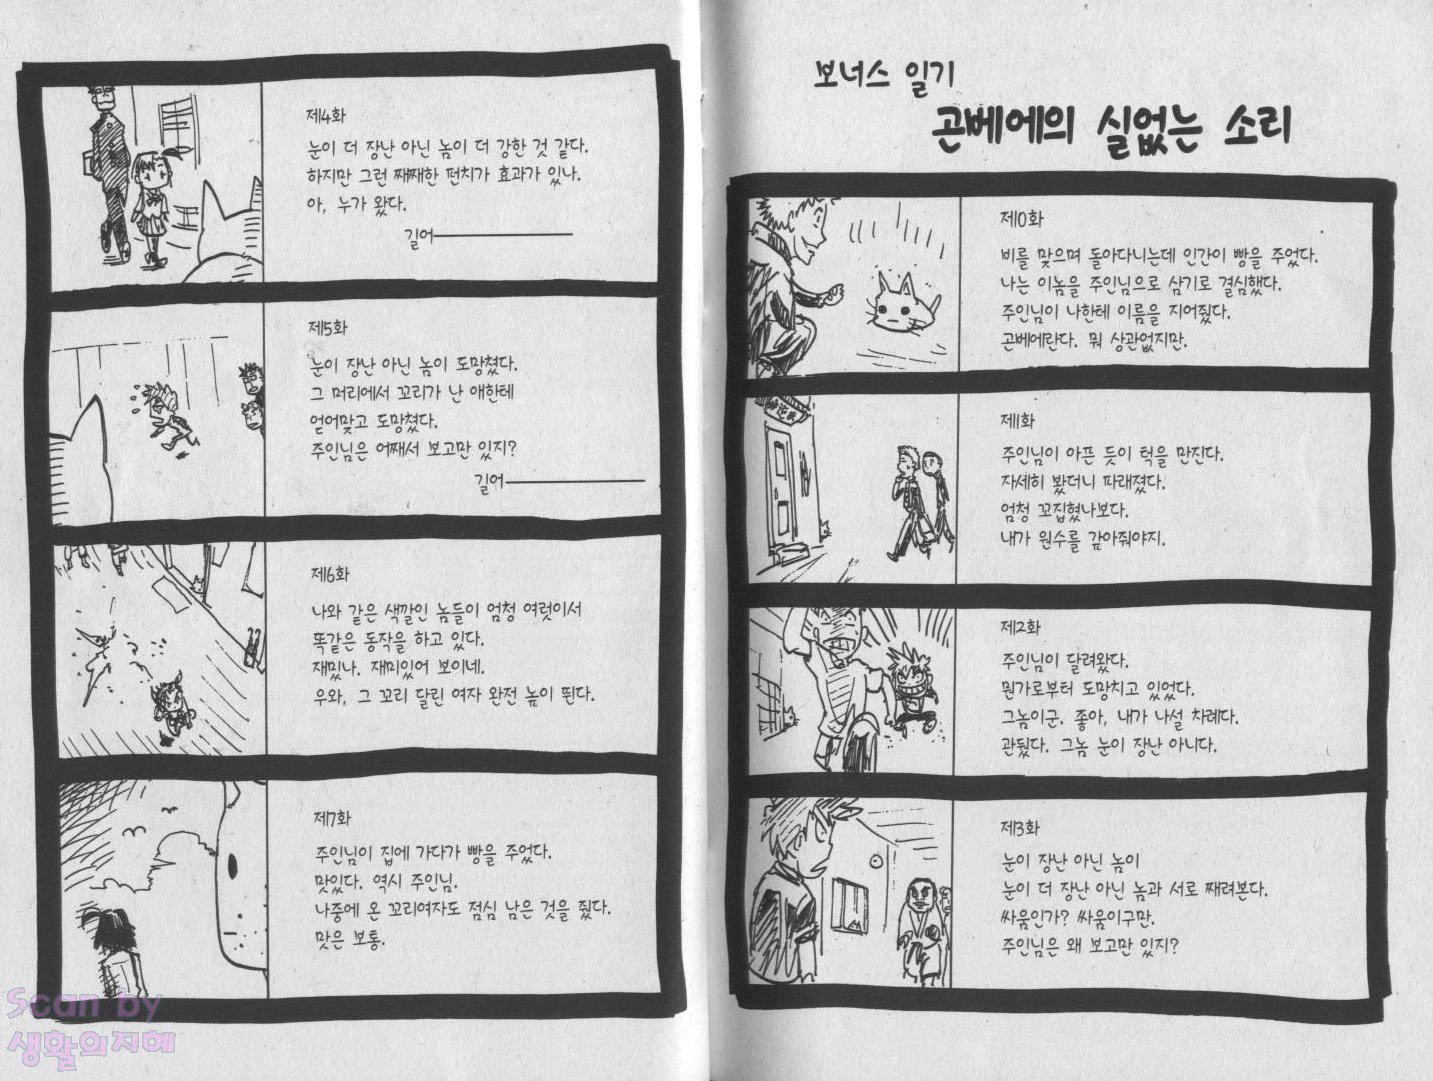 보너스 일기
곤베에의 실없는 소리
제0화
비를 맞으며 돌아다니는데 인간이 빵을 주었다.
나는 이놈을 주인님으로 삼기로 결심했다.
주인님이 나한테 이름을 지어줬다.
곤베에란다. 뭐 상관없지만.
제1화
주인님이 아픈 듯이 턱을 만진다.
자세히 봤더니 파래졌다.
엄청 꼬집혔나보다.
내가 원수를 갚아줘야지.
제2화
주인님이 달려왔다.
뭔가로부터 도망치고 있었다.
그놈이군. 좋아, 내가 나설 차례다.
관뒀다. 그놈 눈이 장난 아니다.
제3화
눈이 장난 아닌 놈이
눈이 더 장난 아닌 놈과 서로 째려본다.
싸움인가? 싸움이구만.
주인님은 왜 보고만 있지?
제4화
눈이 더 장난 아닌 놈이 더 강한 것 같다.
하지만 그런 째째한 펀치가 효과가 있나.
아, 누가 왔다.
길어
제5화
눈이 장난 아닌 놈이 도망쳤다.
그 머리에서 꼬리가 난 애한테
얻어맞고 도망쳤다.
주인님은 어째서 보고만 있지?
길어
제6화
나와 같은 색깔인 놈들이 엄청 여럿이서
똑같은 동작을 하고 있다.
재밌나. 재미있어 보이네.
우와, 그 꼬리 달린 여자 완전 높이 뛴다.
제7화
주인님이 집에 가다가 빵을 주었다.
맛있다. 역시 주인님.
나중에 온 꼬리여자도 점심 남은 것을 줬다.
맛은 보통.
Scan by
생활의지혜